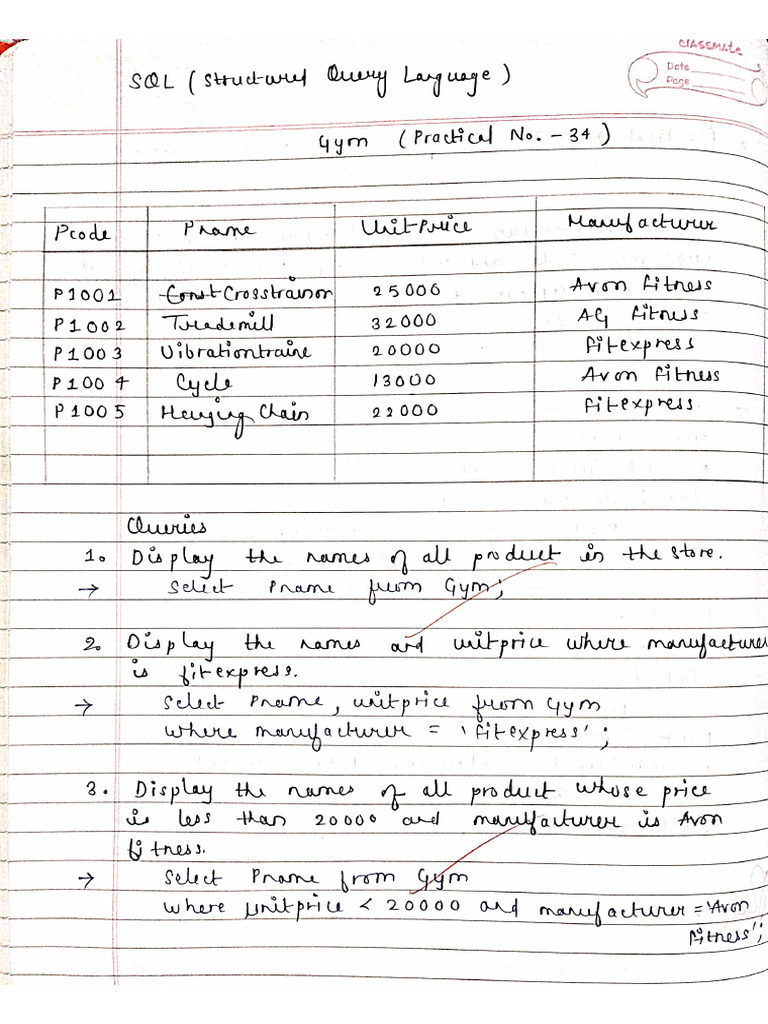 classmate
Date
Page
SQL (Structured Query Language)
Gym (Practical No. - 34)
Pcode Pname UnitPrice Manufacturer
P1001 Const Crosstrainor 25000 Avon fitness
P1002 Treademill 32000 AG fitness
P1003 Vibrationtraine 20000 fitexpress
P1004 Cycle 13000 Avon fitness
P1005 Hanging Chain 22000 fitexpress
Queries
1. Display the names of all product in the store.
→ Select Pname from Gym;
2. Display the names and unitprice where manufacturer
is fitexpress.
→ Select Pname, unitprice from Gym
where manufacturer = 'fitexpress';
3. Display the names of all product whose price
is less than 20000 and manufacturer is Avon
fitness.
→ Select Pname from Gym
where unitprice < 20000 and manufacturer = 'Avon
fitness';